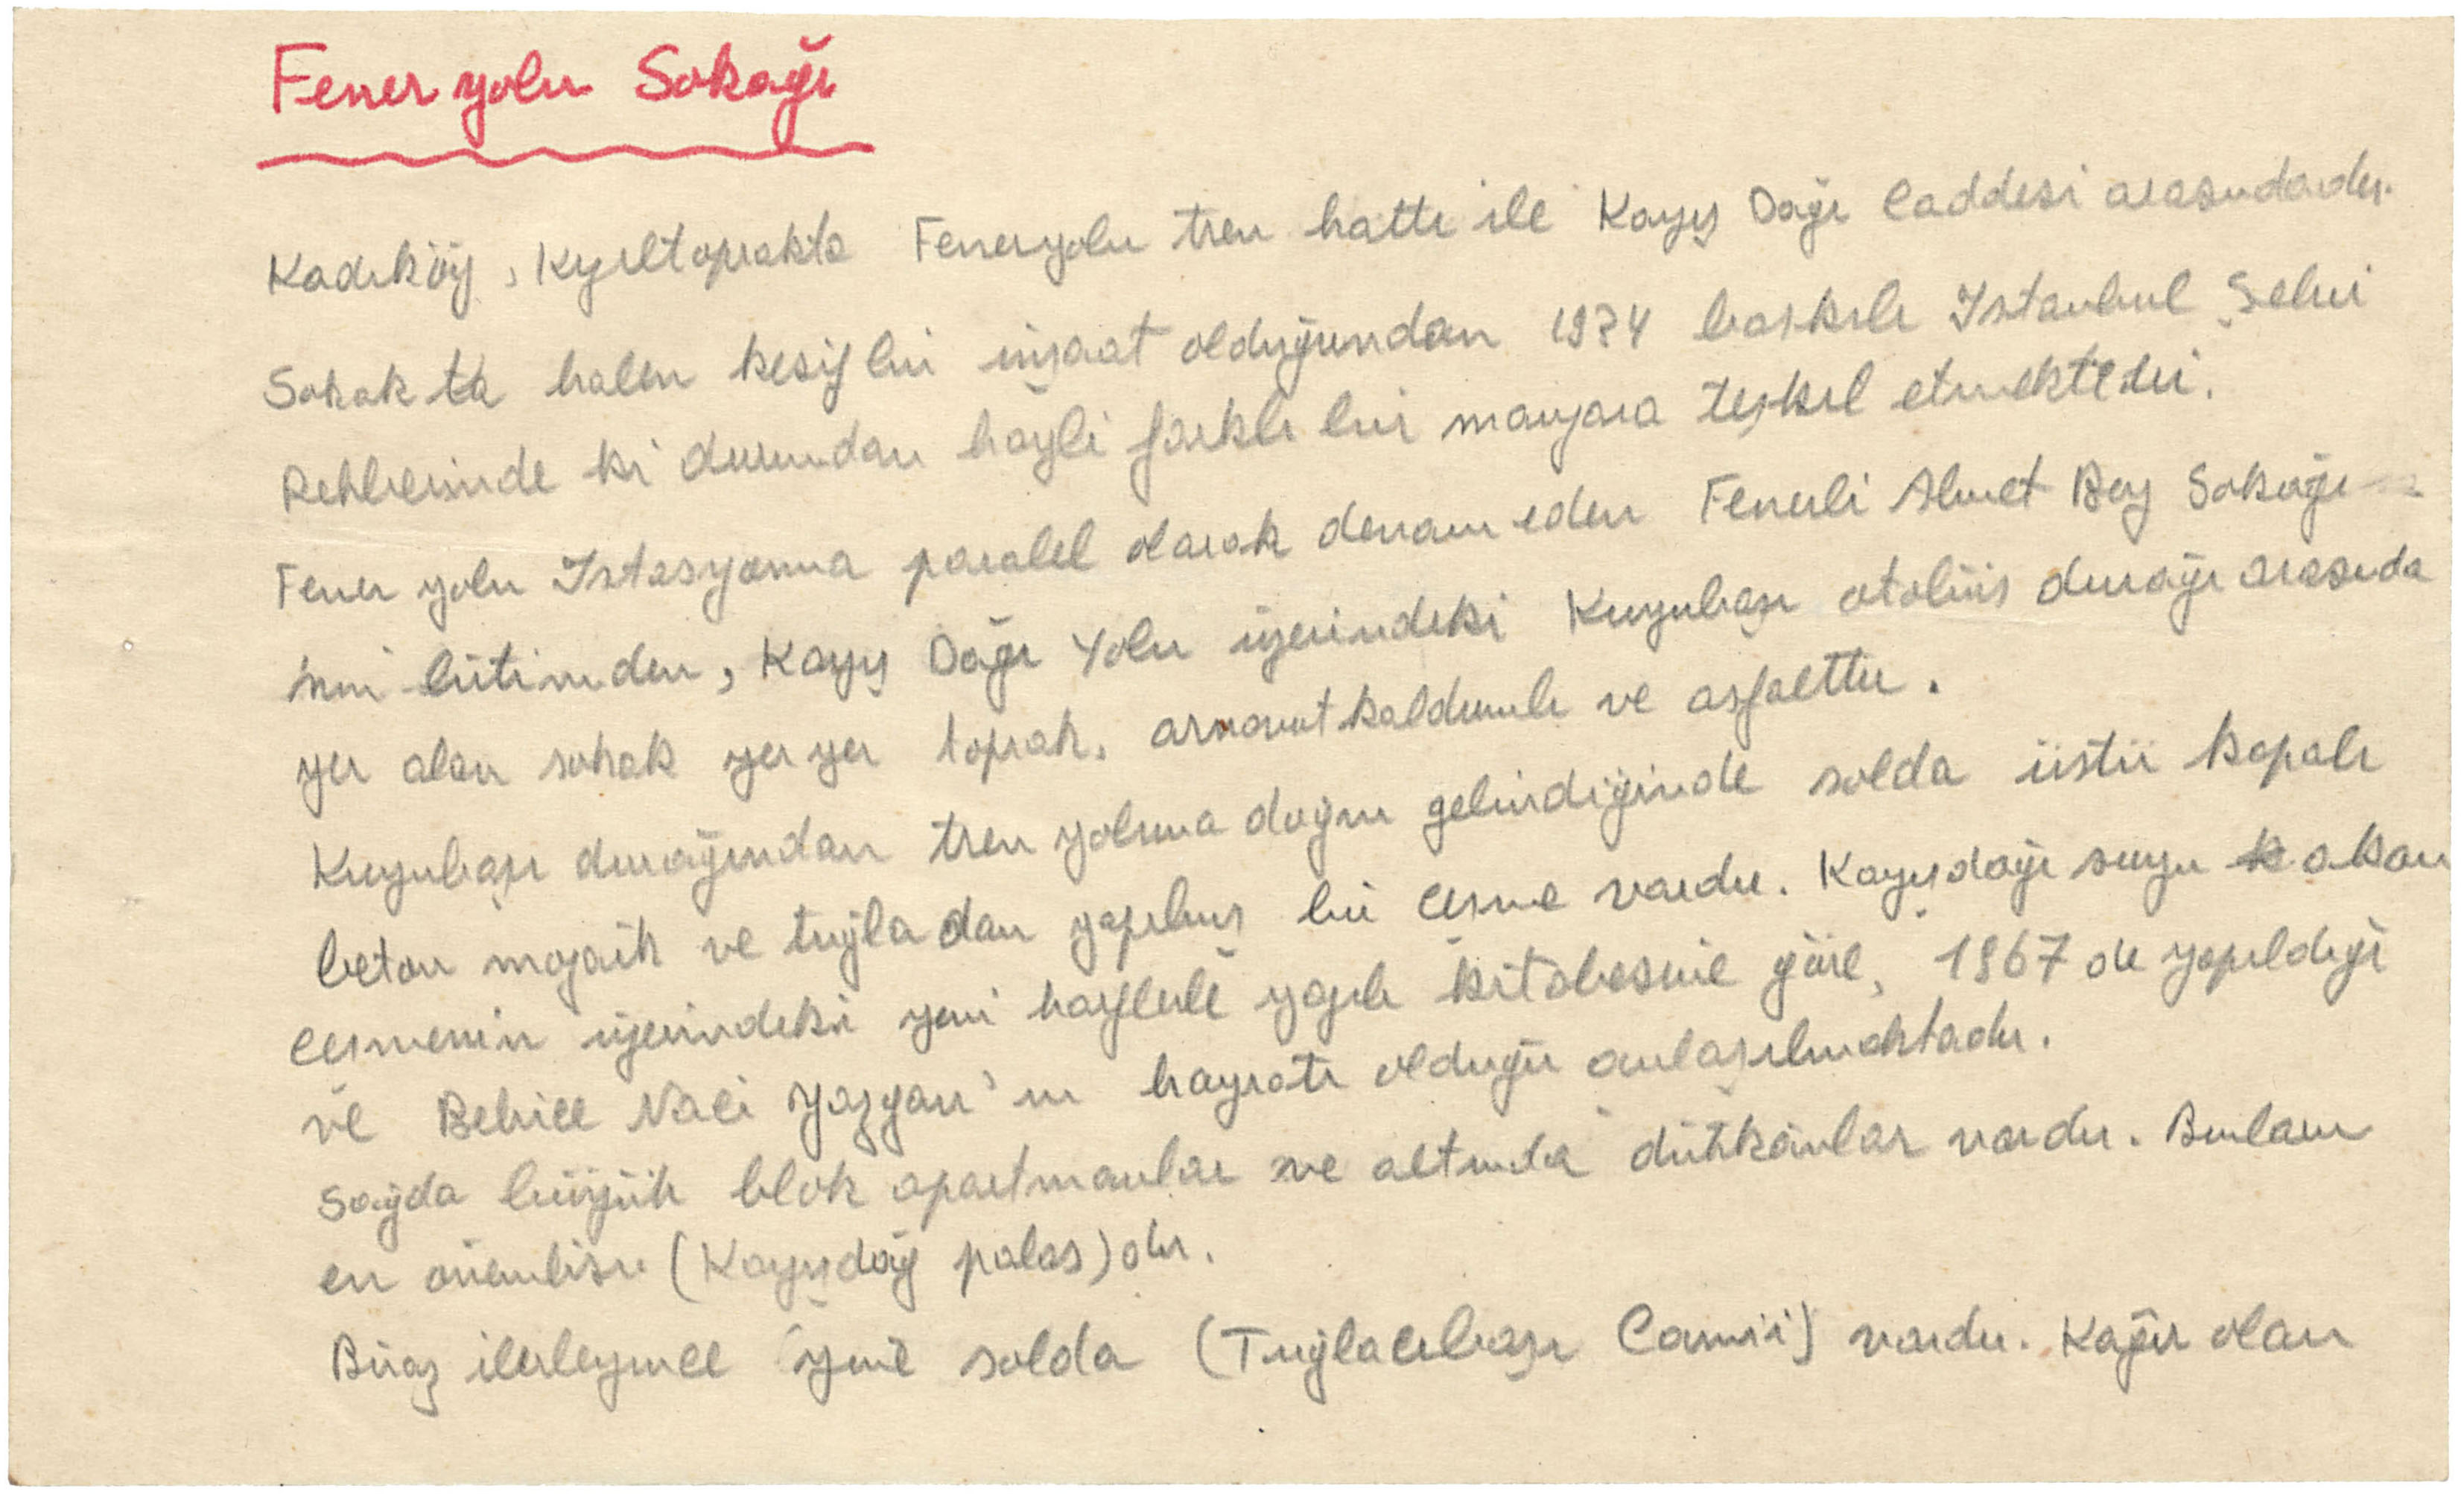 Feneryolu Sokağı
Kadıköy, Kızıltoprakta Feneryolu tren hattı ile Kayış Dağı Caddesi arasındadır.
Sokakta halen kesif bir inşaat olduğundan 1934 baskılı Istanbul Şehir
Rehberinde ki durumdan hayli farklı bir manzara teşkil etmektedir.
Fener yolu Istasyonuna paralel olarak devam eden Fenerli Ahmet Bey Sokağı
nın bitiminden, Kayış Dağı Yolu üzerindeki Kuyubaşı otobüs durağı arasında
yer alan sokak yer yer toprak, arnavut kaldırımlı ve asfalttır.
Kuyubaşı durağından tren yoluna doğru gelindiğinde solda üstü kapalı
beton mozaik ve tuğladan yapılmış bir çeşme vardır. Kayışdağı suyu akan
çeşmenin üzerindeki yeni harflerle yazılı kitabesine göre, 1967 de yapıldığı
ve Behice Naci Yazgan'ın hayratı olduğu anlaşılmaktadır.
Sağda büyük blok apartmanlar ve altında dükkânlar vardır. Bunların
en önemlisi (Kayışdağ palas) dır.
Biraz ilerleyince yine solda (Tuğlacıbaşı Camii) vardır. Kâgir olan